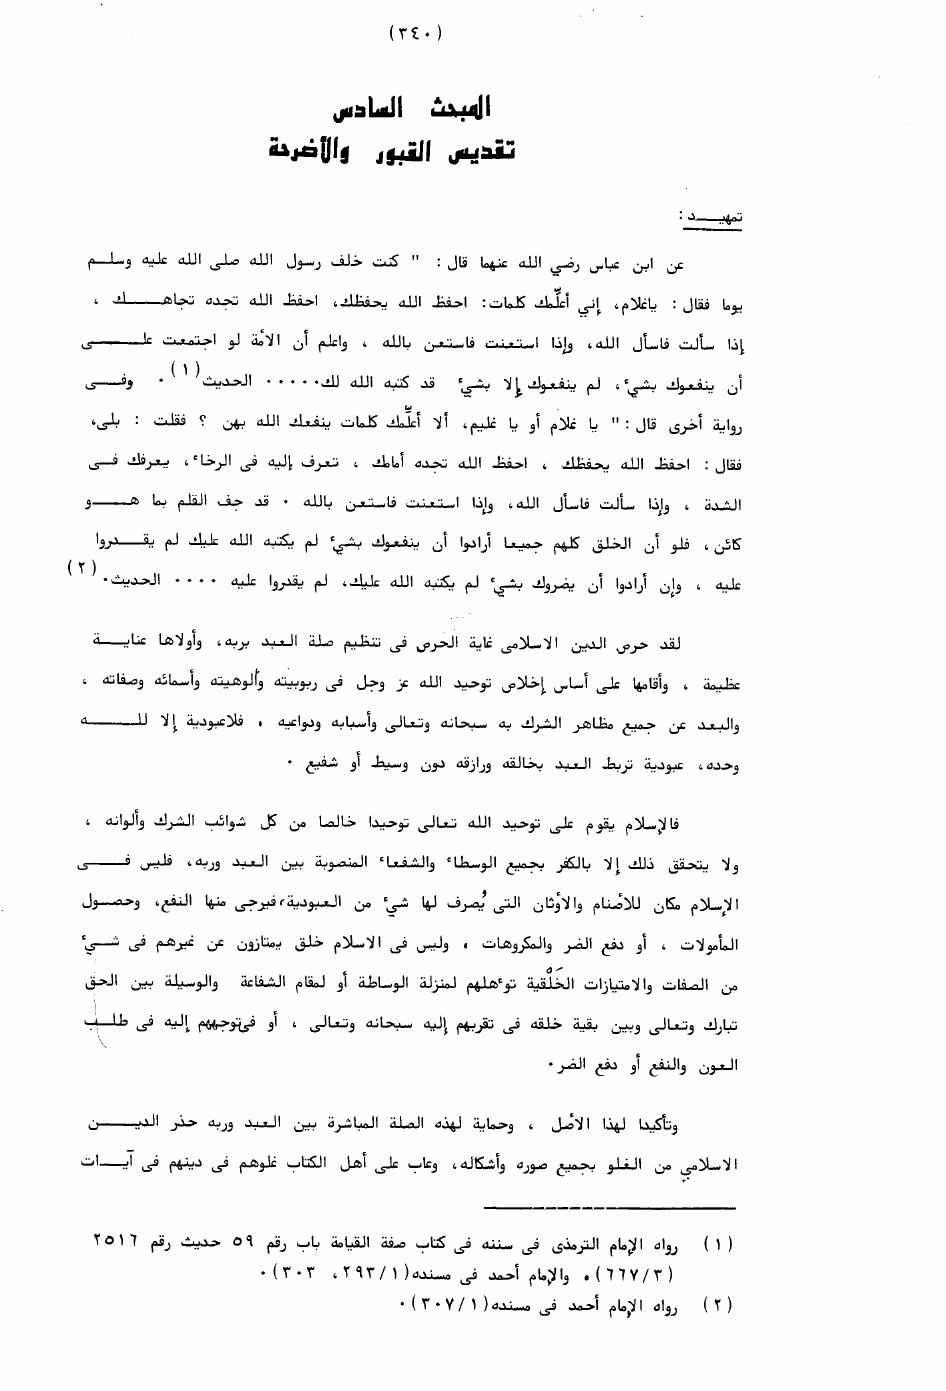 (٣٤٠)
المبحث السادس
تقديس القبور والأضرحة
تمهيــد :
عن ابن عباس رضي الله عنهما قال : " كنت خلف رسول الله صلى الله عليه وسلــم
يوما فقال : ياغلام، إني أعلِّمك كلمات: احفظ الله يحفظك، احفظ الله تجده تجاهــك ،
إذا سألت فاسأل الله، وإذا استعنت فاستعن بالله ، واعلم أن الأمة لو اجتمعت علــى
أن ينفعوك بشيء، لم ينفعوك إلا بشيء قد كتبه الله لك..... الحديث(١). وفــى
رواية أخرى قال : " يا غلام أو يا غليم، ألا أعلِّمك كلمات ينفعك الله بهن ؟ فقلت : بلى،
فقال : احفظ الله يحفظك ، احفظ الله تجده أمامك ، تعرف إليه فى الرخاء، يعرفك فــى
الشدة ، وإذا سألت فاسأل الله، وإذا استعنت فاستعن بالله . قد جف القلم بما هــو
كائن، فلو أن الخلق كلهم جميعا أرادوا أن ينفعوك بشيء لم يكتبه الله عليك لم يقــدروا
عليه ، وإن أرادوا أن يضروك بشيء لم يكتبه الله عليك، لم يقدروا عليه .... الحديث.(٢)
لقد حرص الدين الاسلامى غاية الحرص فى تنظيم صلة العبد بربه، وأولاها عنايــة
عظيمة ، وأقامها على أساس إخلاص توحيد الله عز وجل فى ربوبيته وألوهيته وأسمائه وصفاته ،
والبعد عن جميع مظاهر الشرك به سبحانه وتعالى وأسبابه ودواعيه ، فلاعبودية إلا للــه
وحده، عبودية تربط العبد بخالقه ورازقه دون وسيط أو شفيع .
فالإسلام يقوم على توحيد الله تعالى توحيدا خالصا من كل شوائب الشرك وألوانه ،
ولا يتحقق ذلك إلا بالكفر بجميع الوسطاء والشفعاء المنصوبة بين العبد وربه، فليس فــى
الإسلام مكان للأصنام والأوثان التى يُصرف لها شيء من العبودية، فيرجى منها النفع، وحصــول
المأمولات ، أو دفع الضر والمكروهات ، وليس فى الاسلام خلق يمتازون عن غيرهم فى شــيء
من الصفات والامتيازات الخَلْقية توءهلهم لمنزلة الوساطة أو لمقام الشفاعة والوسيلة بين الحق
تبارك وتعالى وبين بقية خلقه فى تقربهم إليه سبحانه وتعالى ، أو فى توجههم إليه فى طلــب
العون والنفع أو دفع الضر.
وتأكيدا لهذا الأصل ، وحماية لهذه الصلة المباشرة بين العبد وربه حذر الديــن
الاسلامي من الغلو بجميع صوره وأشكاله، وعاب على أهل الكتاب غلوهم فى دينهم فى آيــات
(١) رواه الإمام الترمذى فى سننه فى كتاب صفة القيامة باب رقم ٥٩ حديث رقم ٢٥١٦
(٦٦٧/٣). والإمام أحمد فى مسنده(٢٩٣/١، ٣٠٣).
(٢) رواه الإمام أحمد فى مسنده(٣٠٧/١).